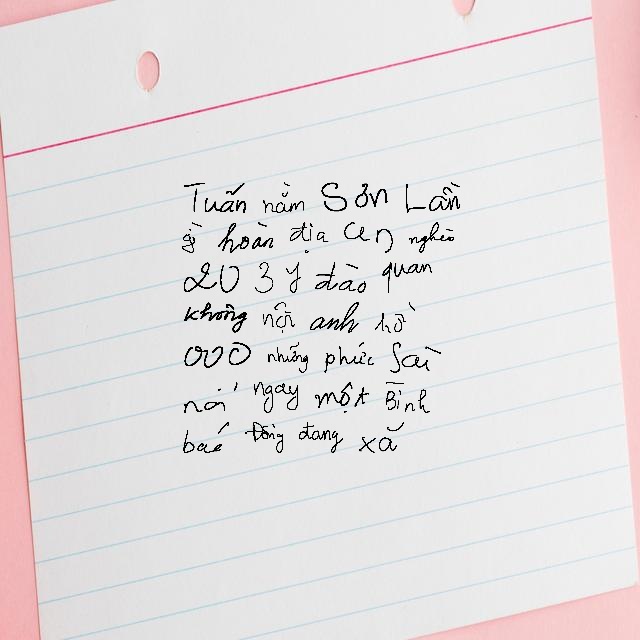 Tuấn nằm Sơn Lần
gì hoàn địa nghèo
203 y đào quan
không nội anh hồ
000 những phúc Sài
nói ngay một Bình
bác Đông đang xã